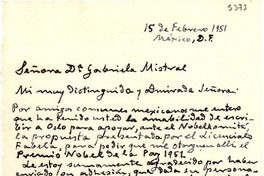 5373
15 de Febrero 1951
México, D.F.
Señora Dª Gabriela Mistral
Mi muy distinguida y admirada Señora:
Por amigos comunes mexicanos me entero
que ha tenido usted la amabilidad de escri-
bir a Oslo para apoyar, ante el Nobelkomité,
la propuesta presentada por el Licenciado
Fabela, para pedir que me otorguen allí el
Premio Nobel de la Paz 1951.
Le estoy sumamente agradecido por haber
enviado su adhesión, que dada su persona-